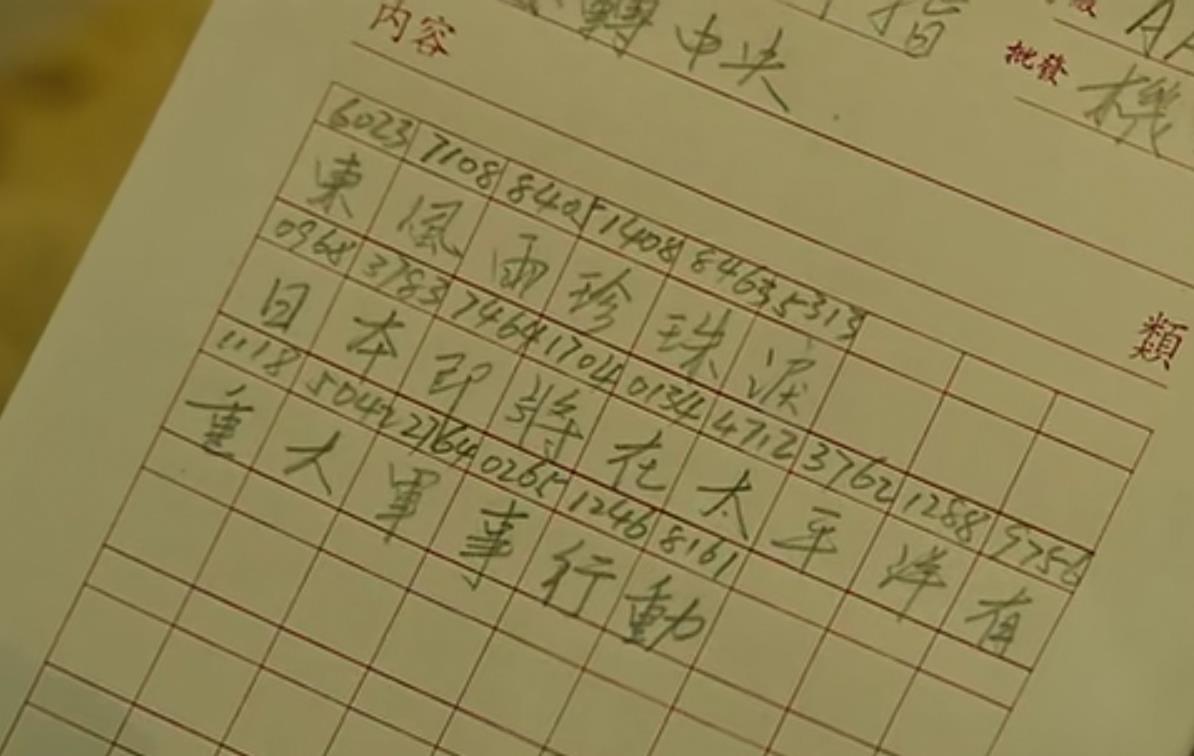 指
轉中央.
批發 機
內容
類
6023 7108 8405 1408 8463 5313
東風雨珍珠淚
0968 3783 7464 1704 0134 4712 3762 1288 9756
日本即將在太平洋有
1118 5042 2764 0265 1246 8161
重大軍事行動